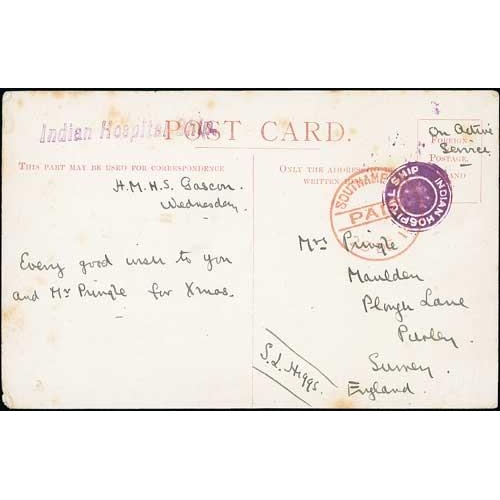 Indian Hospital Ship.
POST CARD.
On Active
Service
FOREIGN
POSTAGE.
THIS PART MAY BE USED FOR CORRESPONDENCE
ONLY THE ADDRESS
WRITTEN
H.M.H.S. Gascon.
Wednesday.
SOUTHAMP
PAI
INDIAN HOSPITAL SHIP
Every good wish to you
and Mr Pringle for Xmas.
Mrs Pringle
Maulden
Plough Lane
Purley
Surrey
England.
S.L. Higgs.